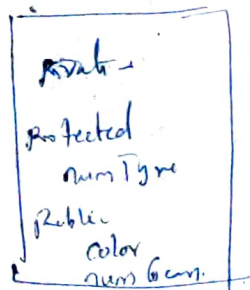 Private
Protected
num Tyre
Public
color
num Gear.